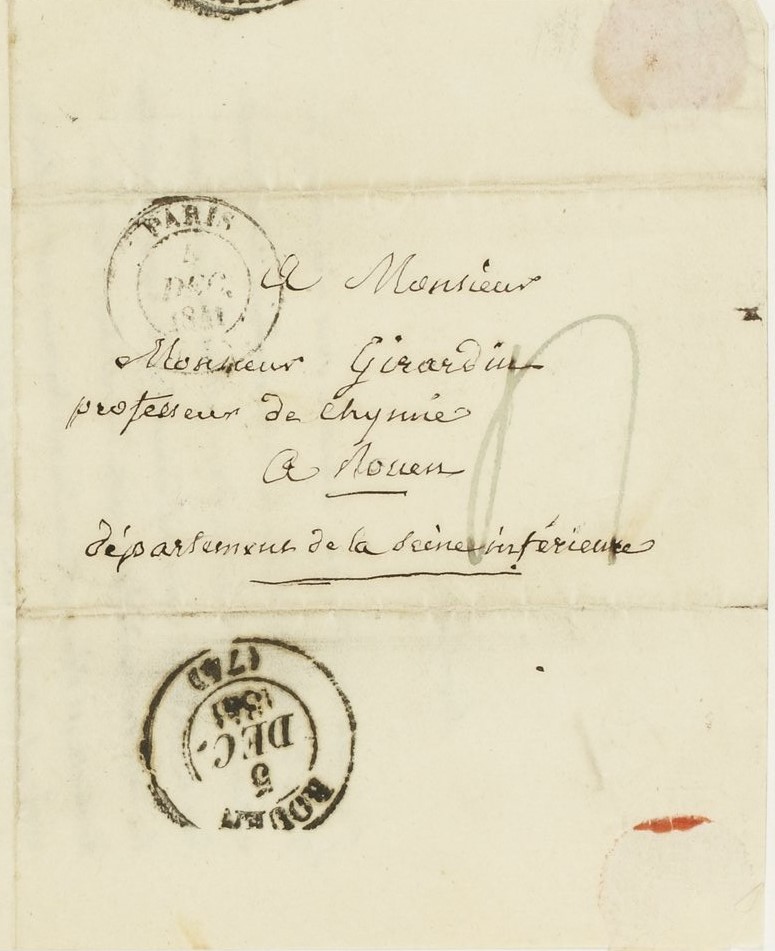 PARIS
4
DEC.
1841
A Monsieur
Monsieur Girardin
professeur de chymie
A Rouen
département de la seine inférieure
ROUEN
5
DEC.
1841
(74)